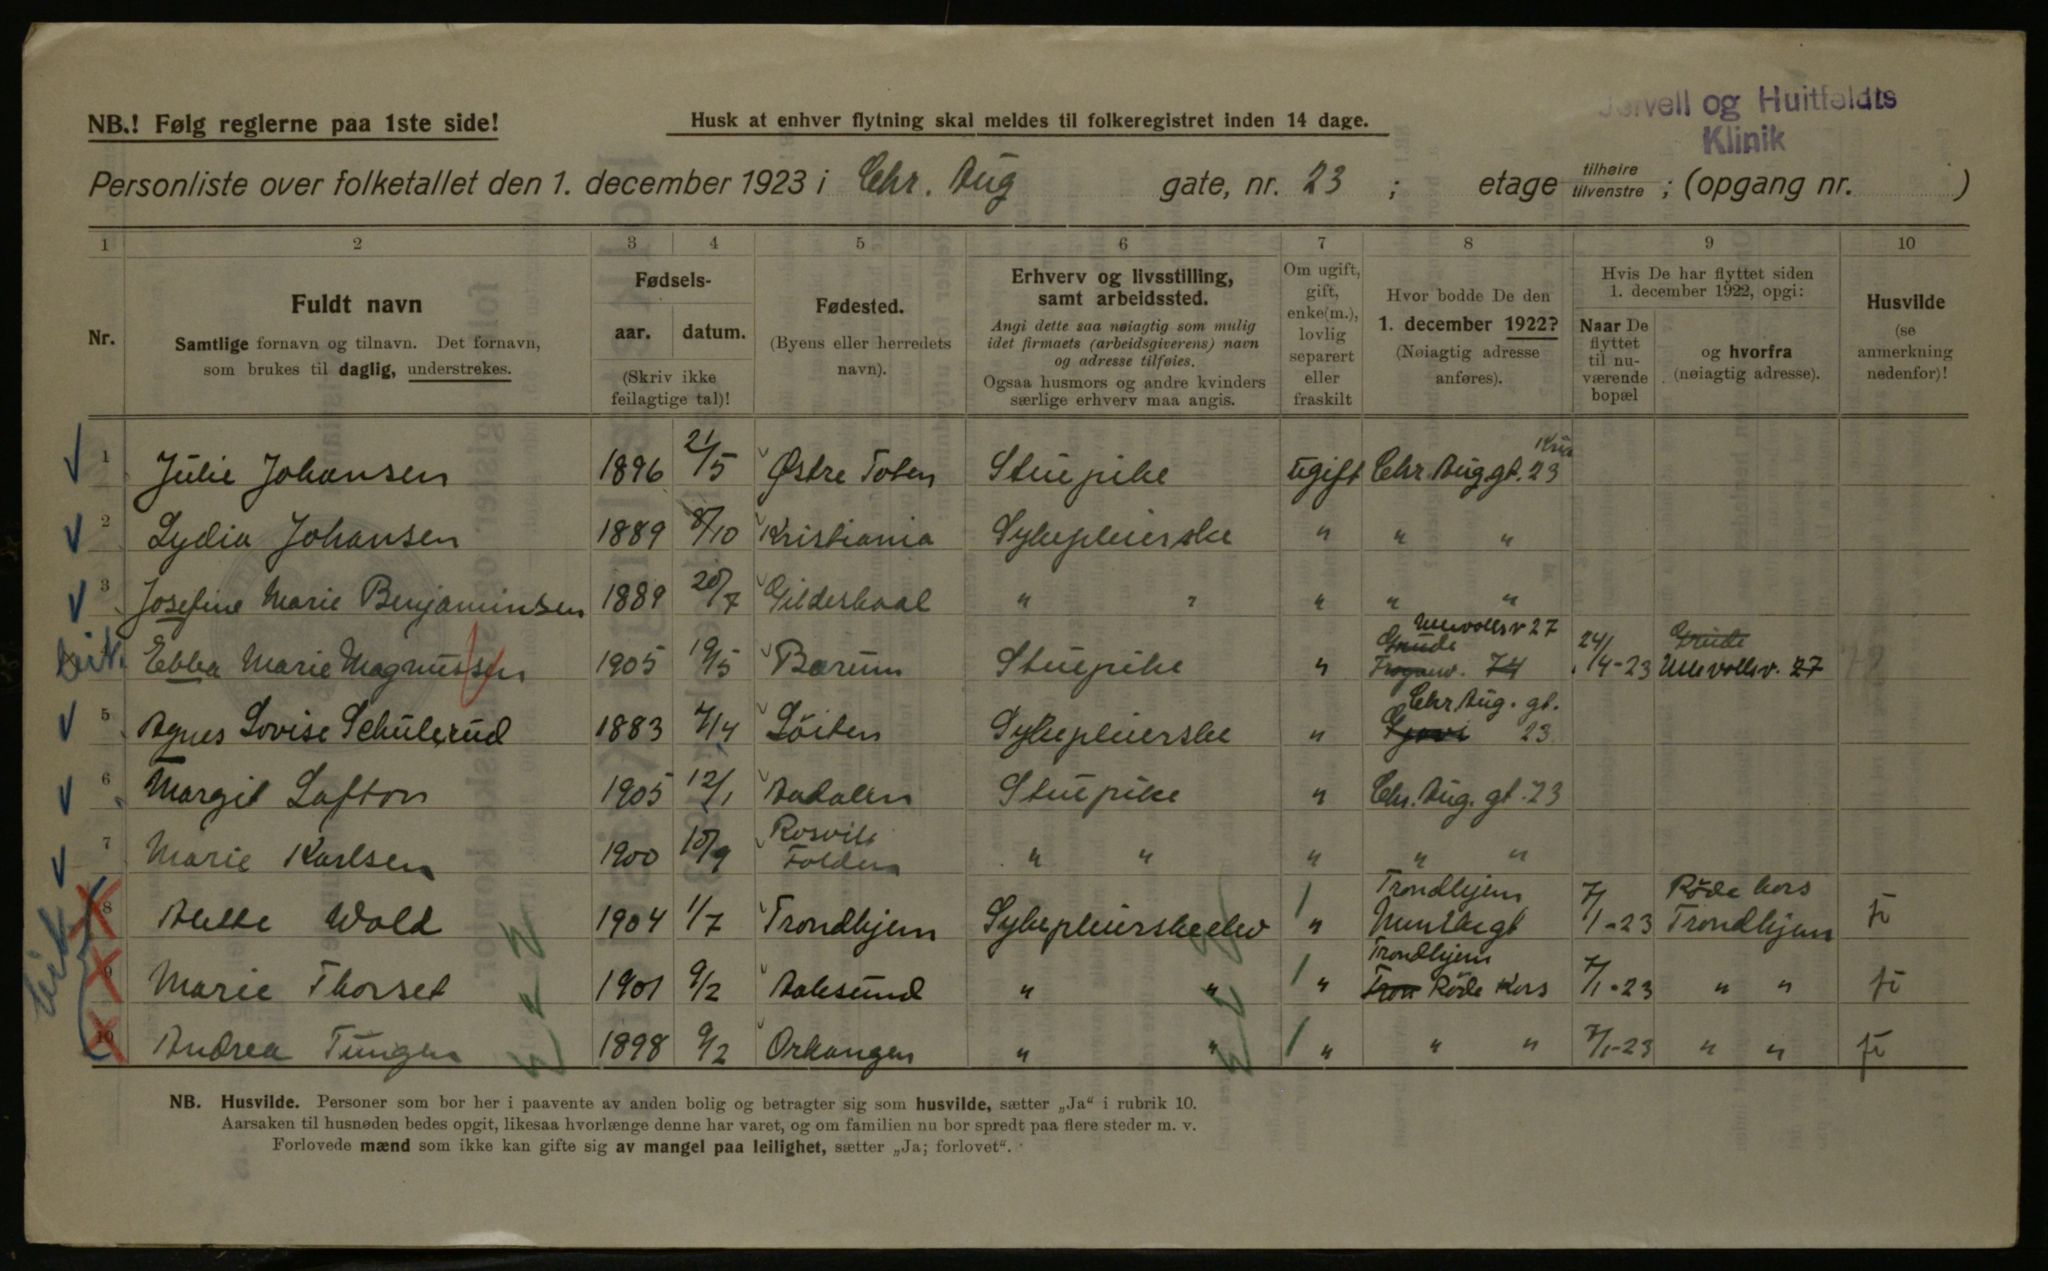 NB.! Følg reglerne paa 1ste side!
Husk at enhver flytning skal meldes til folkeregistret inden 14 dage.
og Huitfeldts
Klinik
Personliste over folketallet den 1. december 1923 i Chr. Aug gate, nr. 23 ; etage tilhøire tilvenstre ; (opgang nr. )
1 2 3 4 5 6 7 8 9 10
Nr.
Fuldt navn
Samtlige fornavn og tilnavn. Det fornavn,
som brukes til daglig, understrekes.
Fødsels-
aar. datum.
(Skriv ikke
feilagtige tal)!
Fødested.
(Byens eller herredets
navn).
Erhverv og livsstilling,
samt arbeidssted.
Angi dette saa nøiagtig som mulig
idet firmaets (arbeidsgiverens) navn
og adresse tilføies.
Ogsaa husmors og andre kvinders
særlige erhverv maa angis.
Om ugift,
gift,
enke(m.),
lovlig
separert
eller
fraskilt
Hvor bodde De den
1. december 1922?
(Nøiagtig adresse
anføres).
Hvis De har flyttet siden
1. december 1922, opgi:
Naar De
flyttet
til nu-
værende
bopæl
og hvorfra
(nøiagtig adresse).
Husvilde
(se
anmerkning
nedenfor)!
1 Julie Johansen 1896 21/5 Østre Toten Stuepike ugift Chr. Aug. gt. 23
2 Lydia Johansen 1889 8/10 Kristiania Sykepleierske " " "
3 Josefine Marie Benjaminsen 1889 20/7 Gildeskaal " " " " "
Ullevollsv 27
Ebba Marie Magnussen 1905 19/5 Bærum Stuepike " 74 24/4-23 Ullevollsv. 27
Chr Aug. gt.
5 Agnes Lovise Schulerud 1883 7/4 Löiten Sykepleierske " 23
6 Margit Lafton 1905 12/1 Aadalen Stuepike " Chr. Aug. gt. 23
7 Marie Karlsen 1900 10/9 Folden " " " " "
Trondhjem Røde kors
8 Wold 1904 1/7 Trondhjem Sykepleierskeelev " 7/1-23 Trondhjem
Trondhjem
9 Marie Thorset 1901 9/2 Aalesund " " " Røde Kors 7/1-23 " "
10 Andrea Tungen 1898 9/2 Orkangen " " " " " 7/1-23 " "
NB. Husvilde. Personer som bor her i paavente av anden bolig og betragter sig som husvilde, sætter „Ja“ i rubrik 10.
Aarsaken til husnøden bedes opgit, likesaa hvorlænge denne har varet, og om familien nu bor spredt paa flere steder m. v.
Forlovede mænd som ikke kan gifte sig av mangel paa leilighet, sætter „Ja; forlovet“.